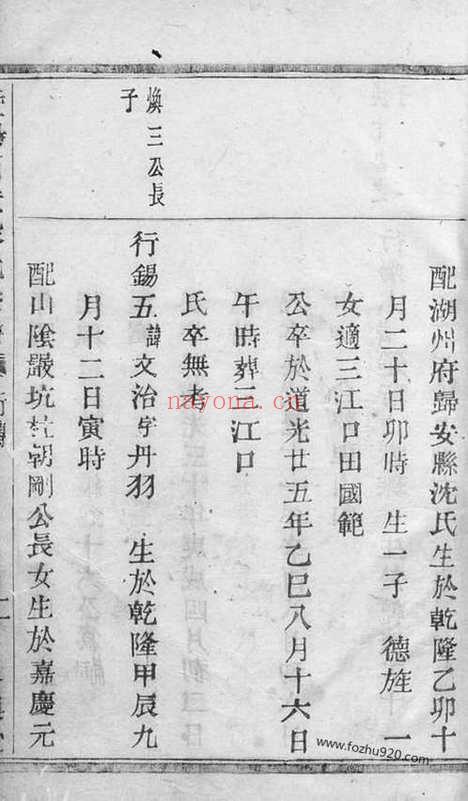 配湖州府歸安縣沈氏生於乾隆乙卯十
月二十日卯時 生一子 德旌 一
女適三江口田國範
公卒於道光廿五年乙巳八月十六日
午時葬三江口
氏卒無考
煥三公長
子
行錫五諱文治字丹羽 生於乾隆甲辰九
月十二日寅時
配山陰嚴坑 朝剛公長女生於嘉慶元
nayona.cn
www.fozhu920.com